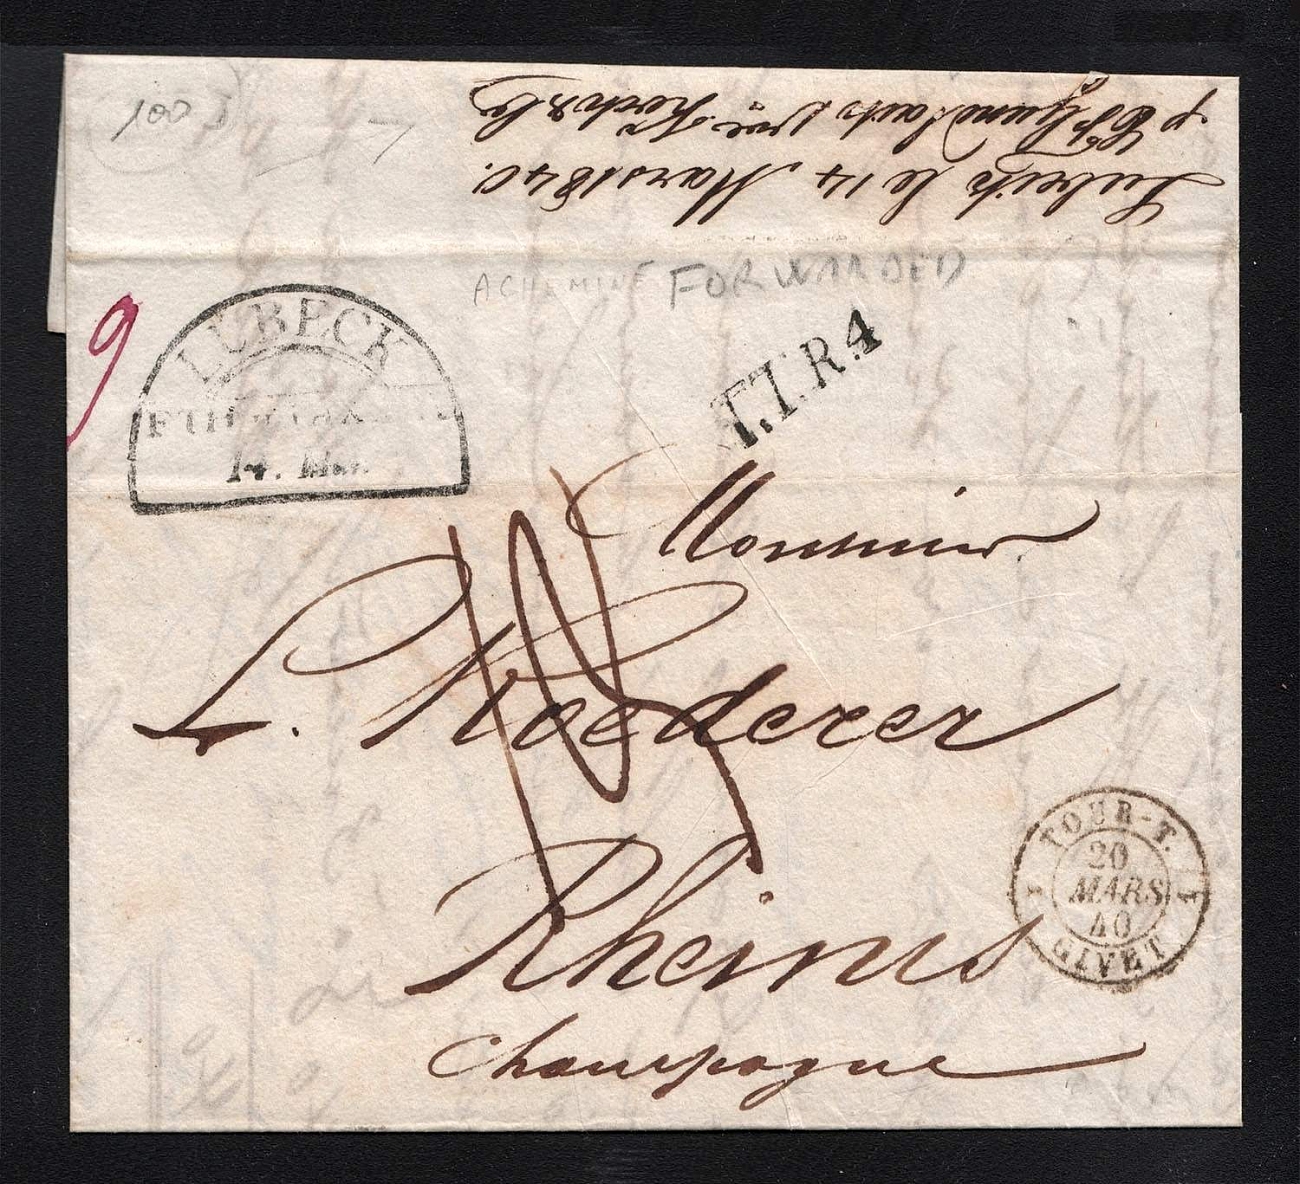 100
Lubeck le 14 Mars 1840.
ACHEMINE FORWARDED
9
LÜBECK
14. Mar.
T.T.R.4
Monsieur
L. Roederer
Rheims
Champagne
TOUR-T.
20
MARS
40
GIVET